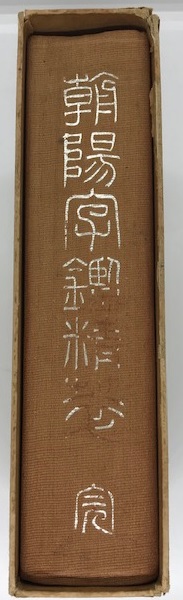 朝陽字鑑精萃
完